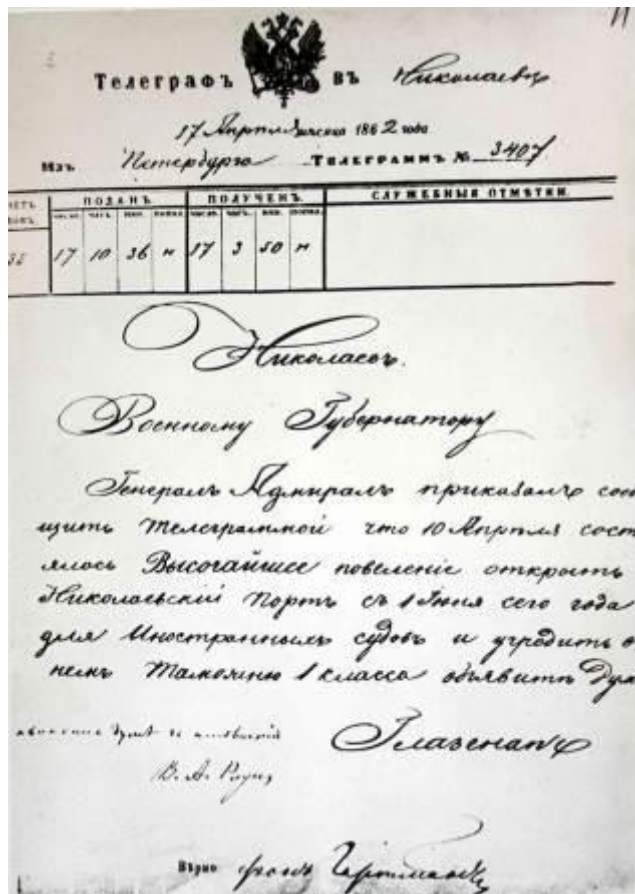 11
Телеграфъ въ Николаевѣ
17 Апрѣля 1862 года
Изъ Петербурга Телеграммъ № 3407
ПОДАНЪ. ПОЛУЧЕНЪ. СЛУЖЕБНЫЯ ОТМѢТКИ.
17 10 36 н 17 3 50 н
Николаевъ.
Военному Губернатору
Генералъ Адмиралъ приказалъ сооб
щить телеграммой что 10 Апрѣля сост
ялось Высочайшее повеленіе открыть
Николаевскій Портъ съ 1 Іюня сего года
для Иностранныхъ судовъ и учредить в
немъ Таможню 1 класса объявить Дум
Глазенапъ
В. А.
Вѣрно